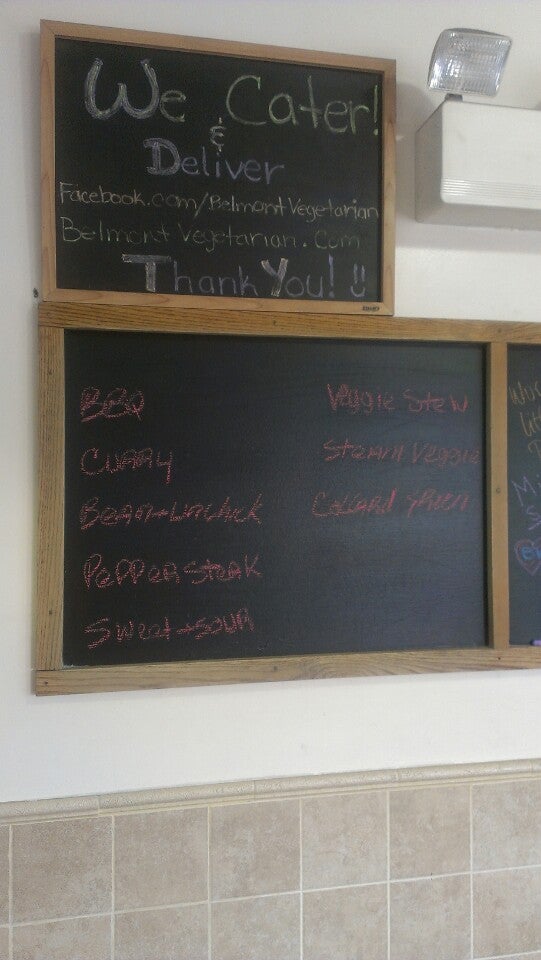 We Cater!
&
Deliver
Facebook.com/BelmontVegetarian
BelmontVegetarian.com
Thank You!
BBQ
Curry
Bean + Unchick
Pepper Steak
Sweat + Sour
Veggie Stew
Steam Veggie
Collard green